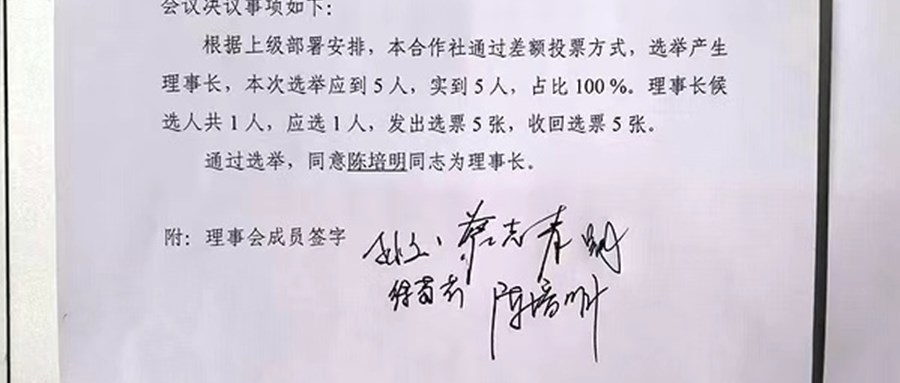 会议决议事项如下：
根据上级部署安排，本合作社通过差额投票方式，选举产生
理事长，本次选举应到5人，实到5人，占比100%。理事长候
选人共1人，应选1人，发出选票5张，收回选票5张。
通过选举，同意陈培明同志为理事长。
附：理事会成员签字
蔡志春
陈培明